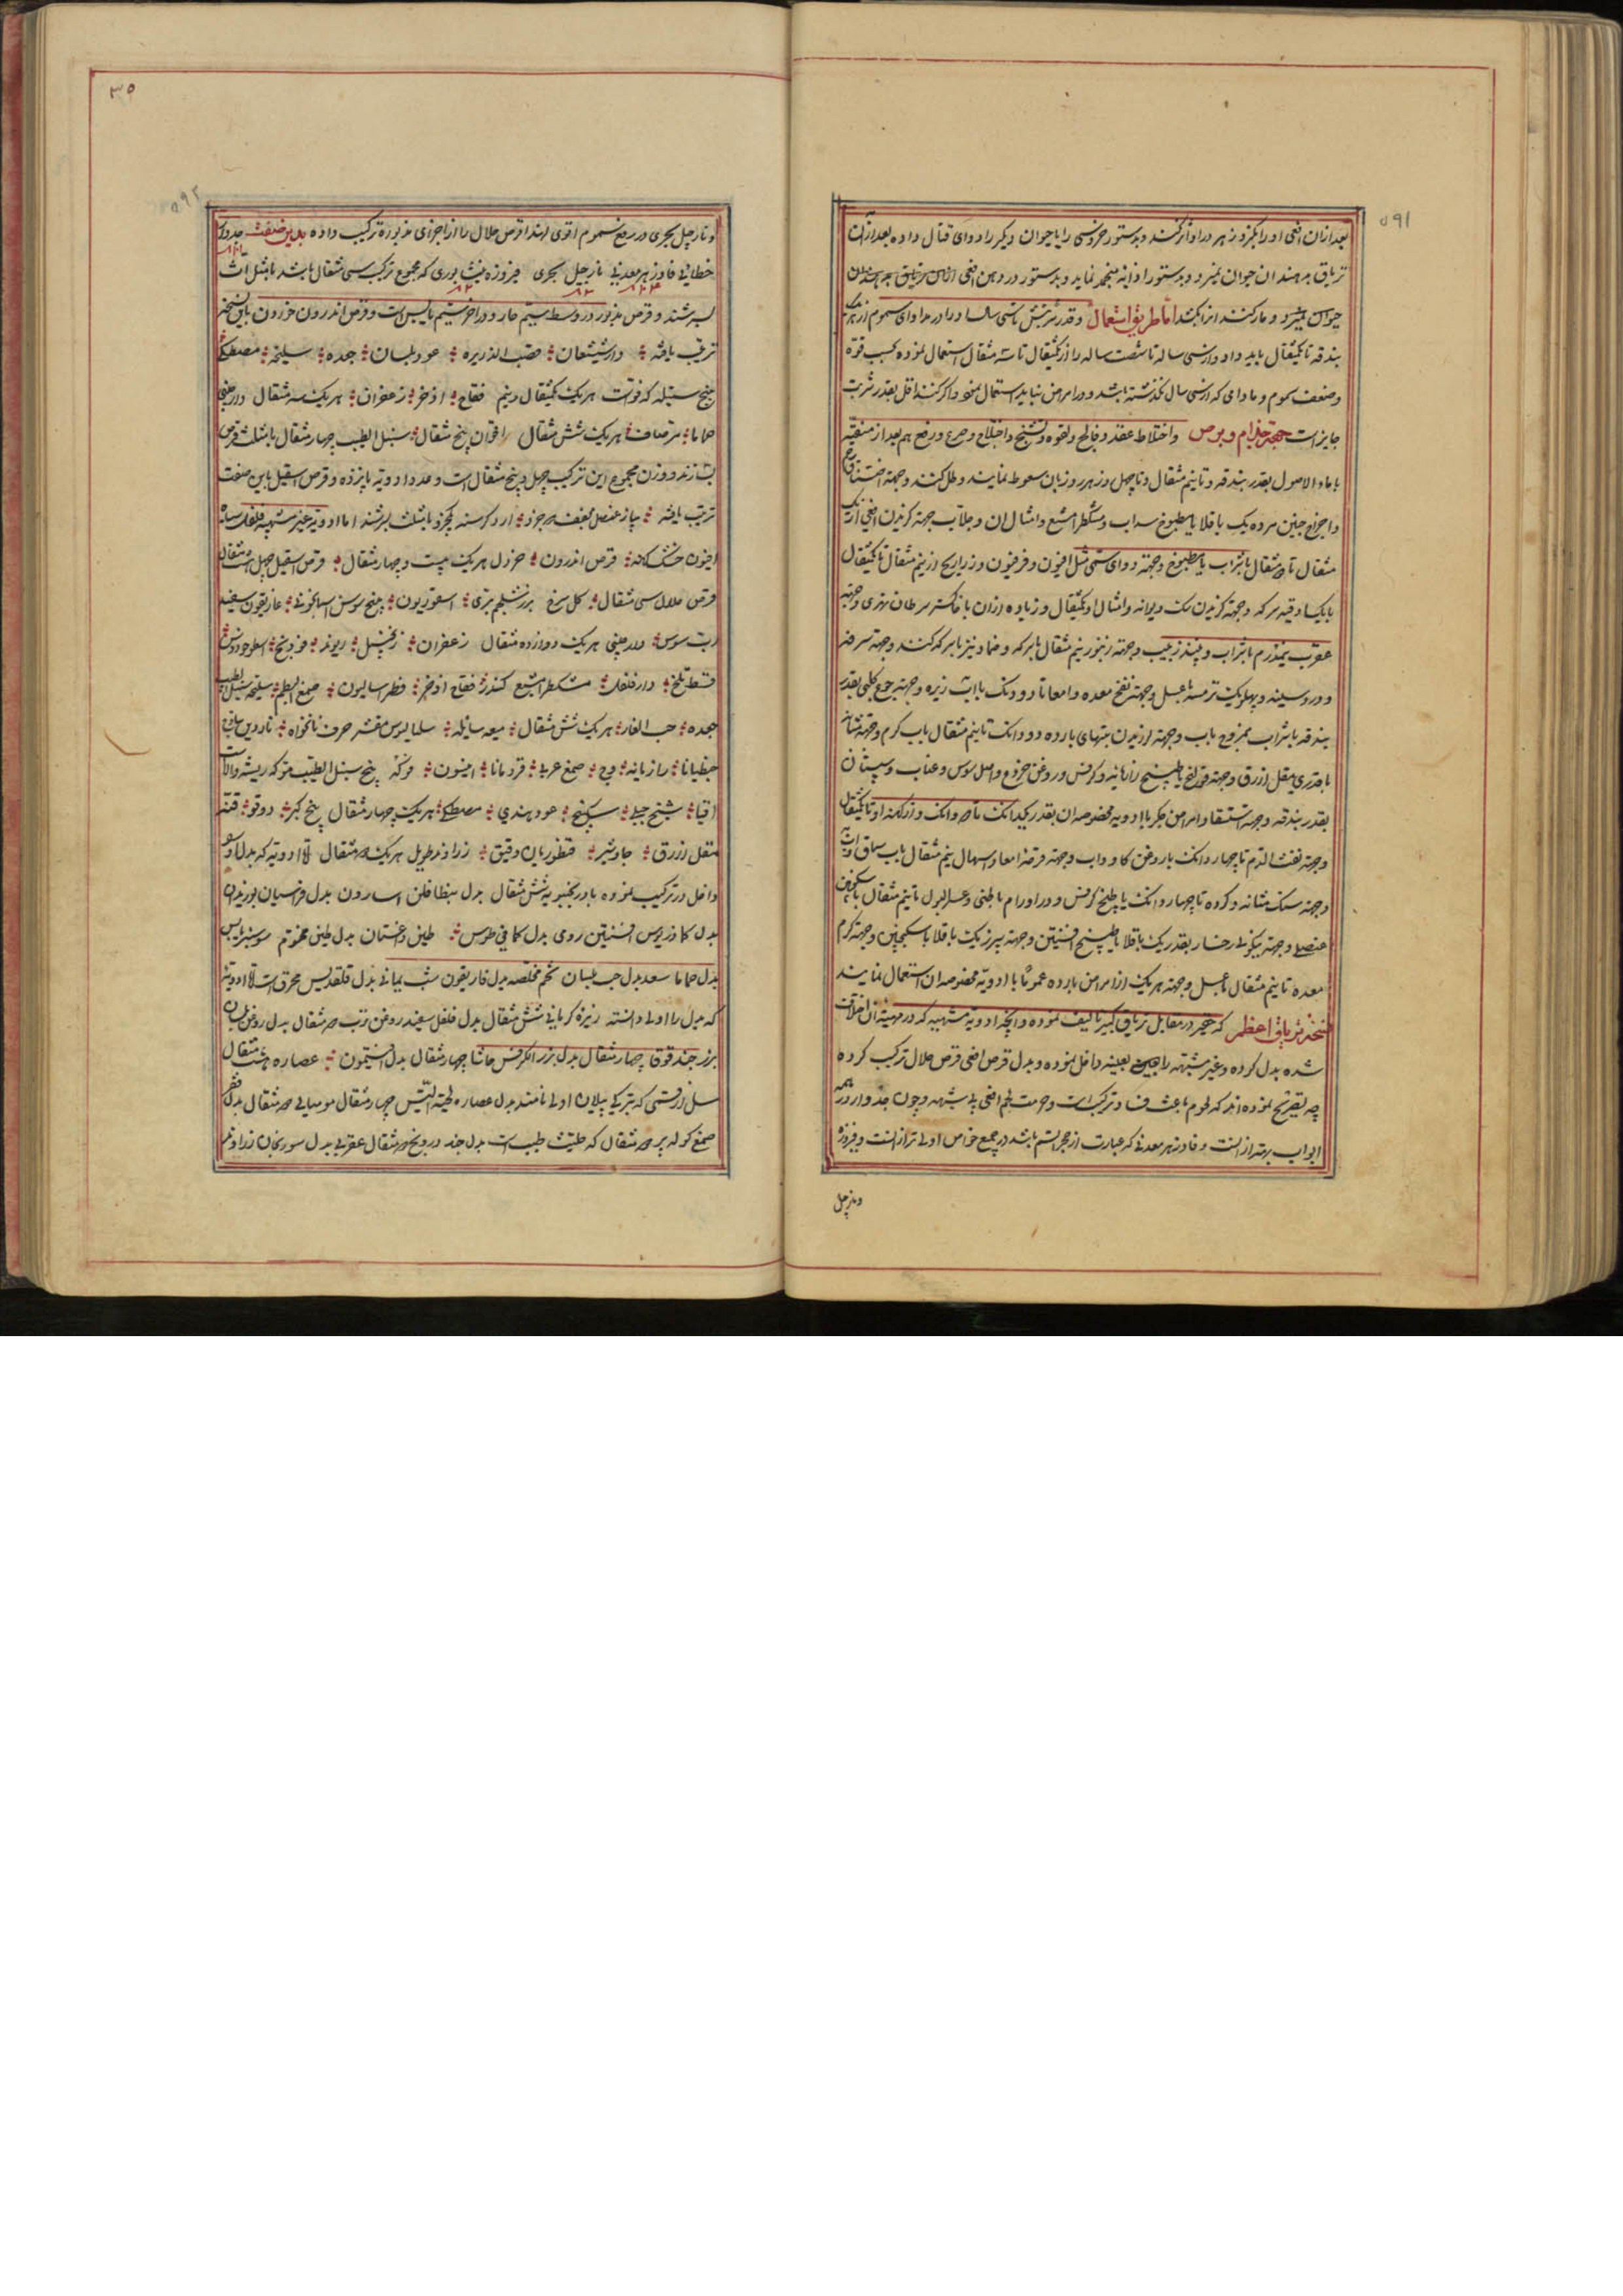 ۵۹۱
بعد ازان افعی او را بگزد زهر در او اثر نکند و بدستور خروسی را یا حیوان دیکر را دوای قتال داده بعد ازان
تریاق بدهند ان حیوان نمیرد و بدستور در دهن افعی
حیوان نمیرد و مار کشند اثر نکند اما طریق استعمال و قدر شربتش تا سی سالها در مداوای سموم از
بندقه تا یکمثقال باید داد و از سی ساله تا شصت ساله را از یکمثقال تا سه مثقال استعمال نموده بحسب قوة
وضعف سموم و مادامی که از سی سال نکذشته باشد و در امراض نباید استعمال نمود و اکر کنند اقل بقدر شربت
جایز است جهة جذام و برص واختلاط عقل و فالج و لقوه و تشنج و اختلاج و صرع و بعد از تنقیه
با ماء الاصول بقدر بندقه و تا نیم مثقال و تا چهل روز هر روز بان سعوط نمایند و طلا کنند و جهة اختناق رحم
و اخراج جنین مرده یک باقلا با مطبوخ سداب و مشکطرامشیع و امثال ان و جلاب جهة کزیدن افعی از یک
مثقال تا مثقال با شراب یا مطبوخ و جهة دوای سمی مثل افیون و فرفیون و زراریح از نیم مثقال تا یکمثقال
با یکساوقیه سرکه و جهة کزیدن سک دیوانه و امثال او یکمثقال و زیاده ازان با خاکستر سرطان نهری و جهة
عقرب نیمدرم با شراب و نبیذ زبیب و جهة زنبور نیم مثقال با سرکه و ضماد نیز با سرکه کنند و جهة سرفه
و درد سینه و پهلو یک ترمسه با عسل و جهة نفخ معده و امعا تا دو دانک با اب زیره و جهة جوع کلبی بقدر
بندقه با شراب ممزوج باب و جهة لرزیدن تبهای بارده دو دانک تا نیم مثقال باب کرم و جهة مثانه
با قدری مقل ازرق و جهة قولنج با طبیخ رازیانه و کرفس و روغن خروع و اصل سوس و عناب و سپستان
بقدر بندقه و جهة استسقا و امراض جکر با ادویه مخصوصه ان بقدر یکدانک تا دانک و از کهنه او تا یکمثقال
و جهة نفث الدم تا چهار دانک با روغن کاو و اب و جهة قرحه امعا و اسهال نیم مثقال باب سماق
و جهة سنک مثانه و کرده تا چهار دانک با طبیخ کرفس و در اورام باطنی و عسر البول تا نیم مثقال با سکنجبین
عنصلی و جهة نیکوئی رخسار بقدر یک باقلا با طبیخ افسنتین و جهة سپرز یک باقلا با سکنجبین و جهة کرم
معده تا نیم مثقال با عسل و جهة هر یک از امراض بارده عموما با ادویه مخصوصه ان استعمال نمایند
نسخه تریاق اعظم که حقیر در مقابل تریاق کبیر تالیف نموده و انچه ادویه مشتبهه که در مهیة ان اختلاف
شده بدل کرده و غیر مشتبهه را بعینه داخل نموده و بدل قرص افعی قرص حلال ترکیب کرده
چه تصریح نموده اند که لحوم باعث فساد ترکیبات و حرمت لحم افعی بی شبهه و چون جدوار در همه
ابواب بهتر از انست و فادزهر معدنی که عبارت از حجر السم باشد در جمیع خواص اولی تر از انست و فیروزه
و نارجیل
۳۵
۵۹۲
و نارجیل بحری در رفع سموم اقوی لهذا قرص حلال را از اجزای مذبوره ترکیب داده بدین صفت جدوار
خطائی فادزهر معدنی نارجیل بحری فیروزه نیشابوری که مجموع ترکیب سی مثقال باشد با مثل ان
بسرشند و قرص مذبور در وسط سیم حار و در اخر سیم یابس است و قرص اندرون خورون باین نسخه
ترتیب یافته دارشیشعان قصب الذریره عود بلسان جعده سلیخه مصطکی
بیخ سنبله که فو است هر یک یکمثقال و نیم فقاح اذخر زعفران هر یک سه مثقال دارچینی
حماما مر صاف هر یک شش مثقال اقحوان پنج مثقال سنبل الطیب چهار مثقال با مثلث قرص
بسازند و وزن مجموع این ترکیب چهل و پنج مثقال است و عدد ادویه پانزده و قرص اسقیل باین صفت
ترتیب یافته پیاز عنصل مجفف جزو ارد کرسنه یکجزو با مثلث بسرشند اما ادویه غیر مشتبهه فلفل سیاه
افیون خشکانه قرص اندرون خردل هر یک بیست و چهار مثقال قرص اسقیل چهل هشت مثقال
قرص حلال سی مثقال کل سرخ بزر شلجم بری اسقوردیون بیخ سوسن اسمانجونی غاریقون سفید
رب سوس دارچینی هر یک دوازده مثقال زعفران زنجبیل ریوند فودنج اسطوخودوس
قسط تلخ دارفلفل مشکطرامشیع کندر فقاح اذخر فطراسالیون صمغ البطم سلیخه سنبل الطیب
جعده حب الغار هر یک شش مثقال میعه سائله سسالیوس مقشر حرف نانخواه ناردین
جنطیانا رازیانه وج صمغ عربی قردمانا انیسون فوکه بیخ سنبل الطیب است که ریشه والا
اقیا شیح جبلی سکبینج عود هندی مصطکی هر یک چهار مثقال بیخ کبر دوقو قنه
مقل ازرق جاوشیر قنطوریان دقیق زراوند طویل هر یک مثقال اما ادویه که بدل او
داخل در ترکیب نموده بادرنجبویه شش مثقال بدل بنطافلن اسارون بدل فراسیون بوزیدان
بدل کمادریوس افسنتین رومی بدل کمافیطوس طین داغستان بدل طین مختوم
بدل حماما سعد بدل حب بلسان تخم مخلصه بدل فاریقون شب یمانی بدل قلقدیس محرق است اما ادویه
که بدل را اولی دانسته زیره کرمانی شش مثقال بدل فلفل سفید روغن ترب مثقال بدل روغن بلسان
بزر حندقوقا چهار مثقال بدل بزر الکرفس حاشا چهار مثقال بدل افتیمون عصاره هشت مثقال
که بترکی ییلان اوتی نامند بدل عصاره لحیة التیس چهار مثقال مومیایی مثقال بدل قفر
صمغ کوله پر مثقال که حلتیت طیب است بدل جند درونج مثقال عقربی بدل سورنجان زراوند